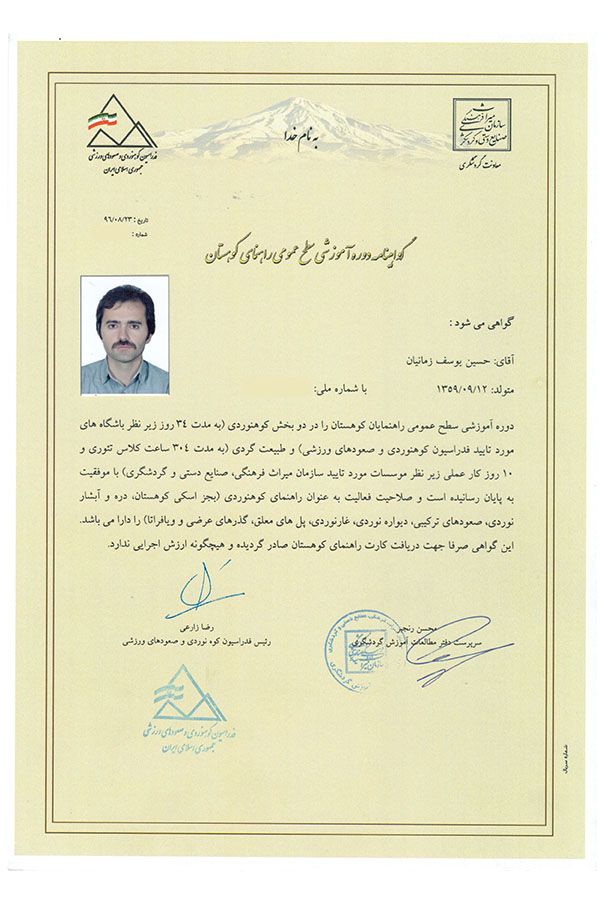 به نام خدا
سازمان میراث فرهنگی
صنایع دستی و گردشگری
معاونت گردشگری
فدراسیون کوهنوردی و صعودهای ورزشی
جمهوری اسلامی ایران
تاریخ : ۹۶/۰۸/۲۳
شماره :
گواهینامه دوره آموزشی سطح عمومی راهنمای کوهستان
گواهی می شود :
آقای: حسین یوسف زمانیان
متولد: ۱۳۵۹/۰۹/۱۲ با شماره ملی:
دوره آموزشی سطح عمومی راهنمایان کوهستان را در دو بخش کوهنوردی (به مدت ۳۴ روز زیر نظر باشگاه های
مورد تایید فدراسیون کوهنوردی و صعودهای ورزشی) و طبیعت گردی (به مدت ۳۰۴ ساعت کلاس تئوری و
۱۰ روز کار عملی زیر نظر موسسات مورد تایید سازمان میراث فرهنگی، صنایع دستی و گردشگری) با موفقیت
به پایان رسانیده است و صلاحیت فعالیت به عنوان راهنمای کوهنوردی (بجز اسکی کوهستان، دره و آبشار
نوردی، صعودهای ترکیبی، دیواره نوردی، غارنوردی، پل های معلق، گذرهای عرضی و ویافراتا) را دارا می باشد.
این گواهی صرفا جهت دریافت کارت راهنمای کوهستان صادر گردیده و هیچگونه ارزش اجرایی ندارد.
محسن رنجبر
سرپرست دفتر مطالعات آموزش گردشگری
رضا زارعی
رئیس فدراسیون کوه نوردی و صعودهای ورزشی
فدراسیون کوهنوردی و صعودهای ورزشی
جمهوری اسلامی ایران
شماره سریال